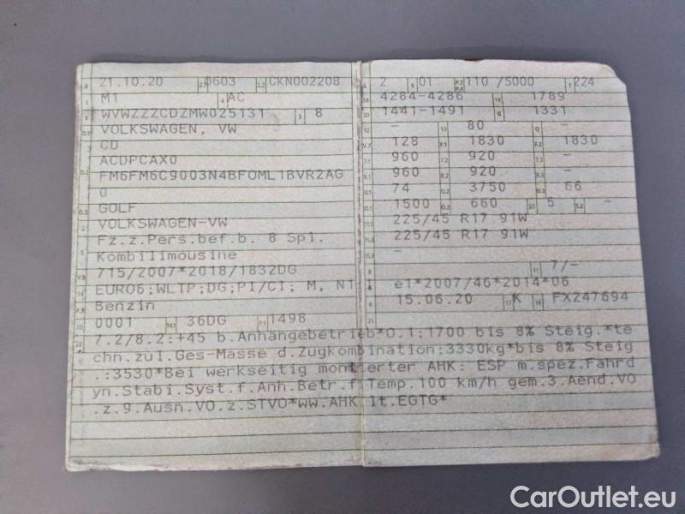 21.10.20 0603 CKN002208
M1 AC
WVWZZZCDZMW025131 8
VOLKSWAGEN, VW
CD
ACDPCAX0
FM6FM6C9003N4BFOML1BVR2AG
0
GOLF
VOLKSWAGEN-VW
Fz.z.Pers.bef.b. 8 Spl.
Kombilimousine
715/2007*2018/1832DG
EURO6;WLTP;DG;PI/CI; M, N1
Benzin
0001 36DG 1498
2 01 110 /5000 224
4284-4286 1789
1441-1491 1331
- 80 -
128 1830 1830
960 920 -
960 920 -
74 3750 66
1500 660 5 -
225/45 R17 91W
225/45 R17 91W
-
7/-
e1*2007/46*2014*06
15.06.20 K FX247694
7.2/8.2:+45 b.Anhängebetrieb*O.1:1700 bis 8% Steig.*te
chn.zul.Ges-Masse d.Zugkombination:3330kg*bis 8% Steig
.:3530*Bei werkseitig montierter AHK: ESP m.spez.Fahrd
yn.Stabi.Syst.f.Anh.Betr.f.Temp.100 km/h gem.3.Aend.VO
.z.9.Ausn.VO.z.STVO*ww.AHK lt.EGTG*
CarOutlet.eu